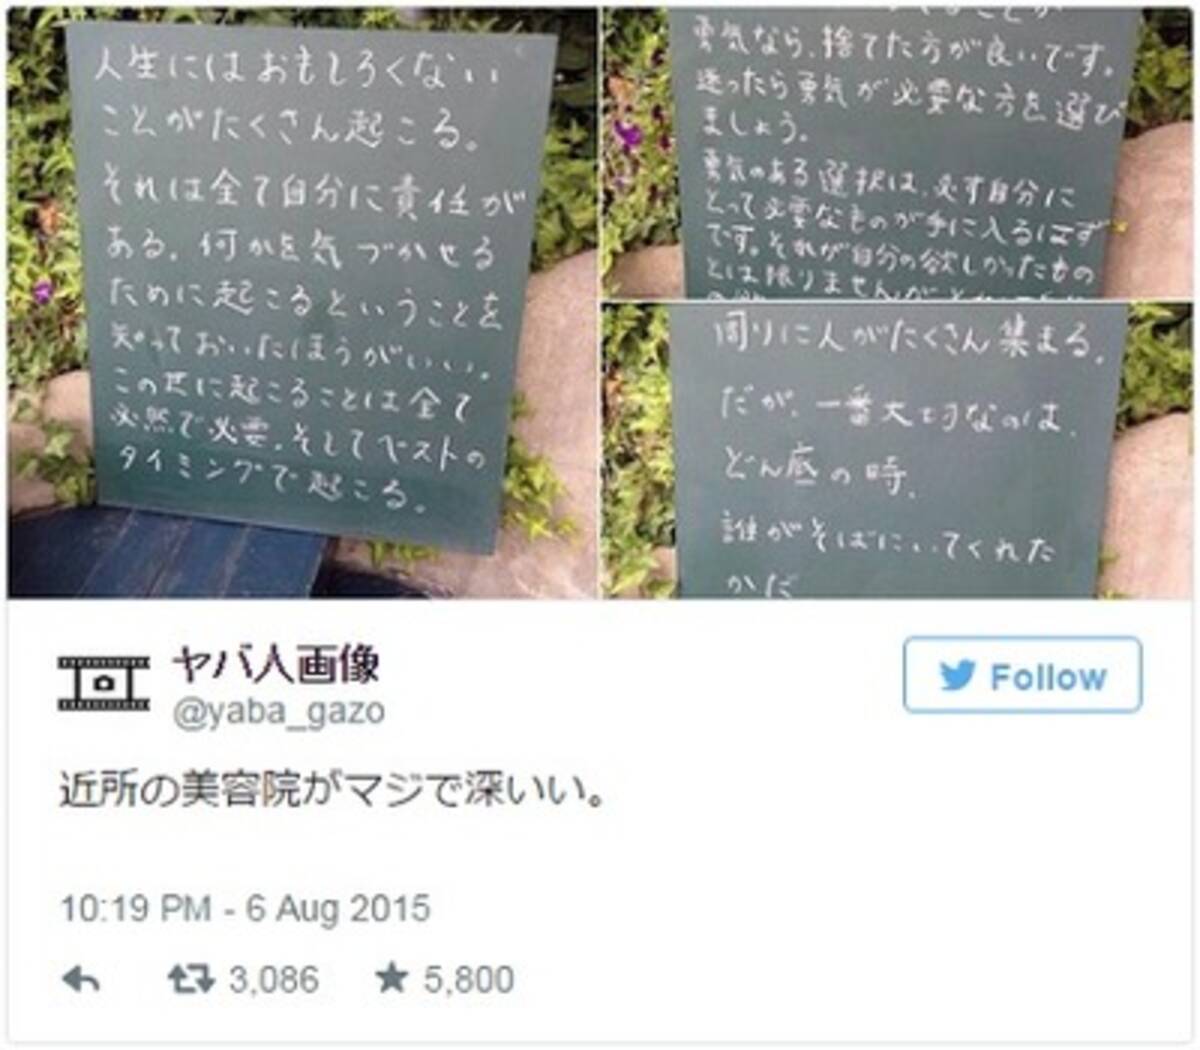 人生にはおもしろくない
ことがたくさん起こる。
それは全て自分に責任が
ある。何かを気づかせる
ために起こるということを
気がっておいたほうがいい。
この世に起こることは全て
必然で必要。そしてベストの
タイミングで起こる。
勇気なら、捨てた方が良いです。
迷ったら勇気が必要な方を選び
ましょう。
勇気のある選択は、必ず自分に
とって必要なものが手に入るはず
です。それが自分の欲しかったもの
とは限りませんが
周りに人がたくさん集まる。
だが、一番大切なのは、
どん底の時、
誰がそばにいてくれた
かだ
ヤバ人画像
@yaba_gazo
Follow
近所の美容院がマジで深いい。
10:19 PM - 6 Aug 2015
3,086
5,800